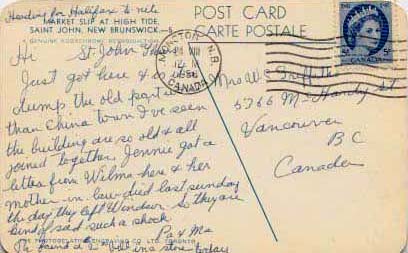 Heading for Halifax to nite
MARKET SLIP AT HIGH TIDE,
SAINT JOHN, NEW BRUNSWICK.
POST CARD
CARTE POSTALE
MONCTON N.B.
CANADA
5¢ CANADA 5¢
Hi St. John
Just got here &
dump the old part
than China town I've seen
the building are so old & all
joined together, Jennie got a
letter from Wilma here & her
mother-in-law died last sunday
the day they left Windsor. So they are
kind of sad such a shock
Pa & Ma
in a store today
Mrs W
5766 Mc Hardy St
Vancouver
B C
Canada
THE PHOTOGELATINE ENGRAVING CO. LTD. TORONTO